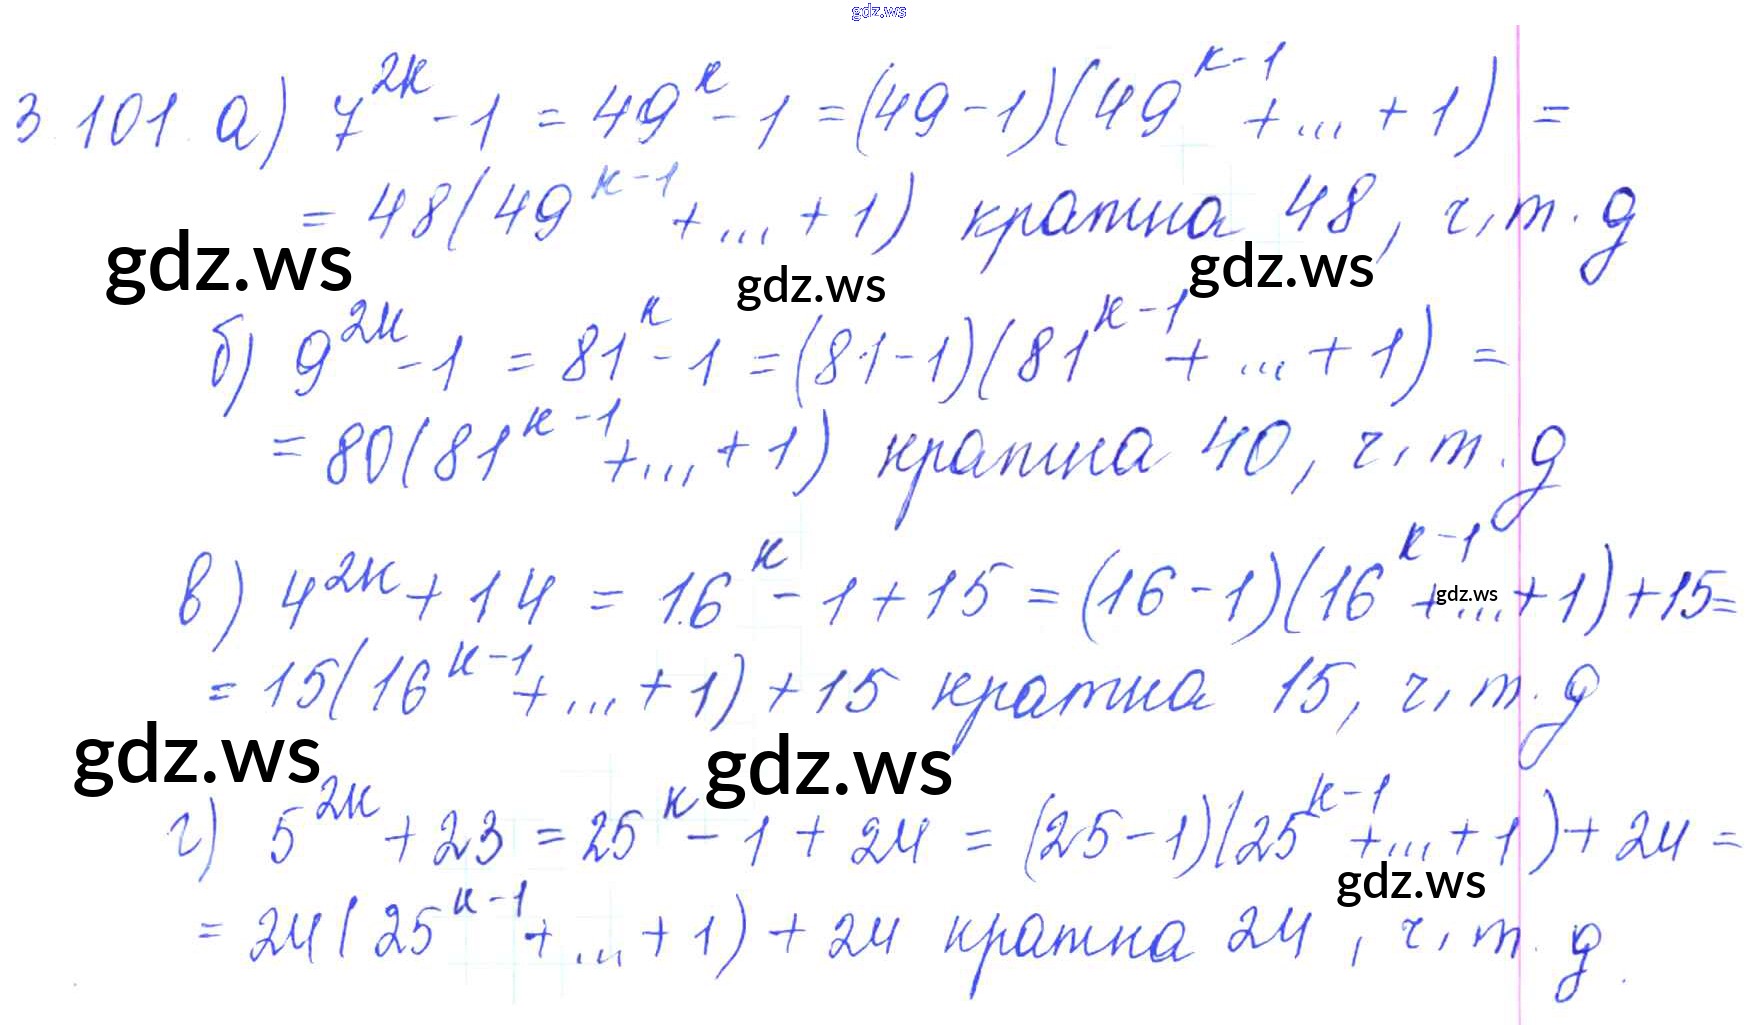 gdz.ws
3.101. а) 7^{2к} - 1 = 49^к - 1 = (49 - 1)(49^{к-1} + ... + 1) =
= 48(49^{к-1} + ... + 1) кратна 48, ч.т.д
gdz.ws gdz.ws gdz.ws
б) 9^{2к} - 1 = 81^к - 1 = (81-1)(81^{к-1} + ... + 1) =
= 80(81^{к-1} + ... + 1) кратна 40, ч.т.д
в) 4^{2к} + 14 = 16^к - 1 + 15 = (16 - 1)(16^{к-1} + ... + 1) + 15 =
gdz.ws
= 15(16^{к-1} + ... + 1) + 15 кратна 15, ч.т.д
gdz.ws gdz.ws
г) 5^{2к} + 23 = 25^к - 1 + 24 = (25 - 1)(25^{к-1} + ... + 1) + 24 =
gdz.ws
= 24(25^{к-1} + ... + 1) + 24 кратна 24, ч.т.д.